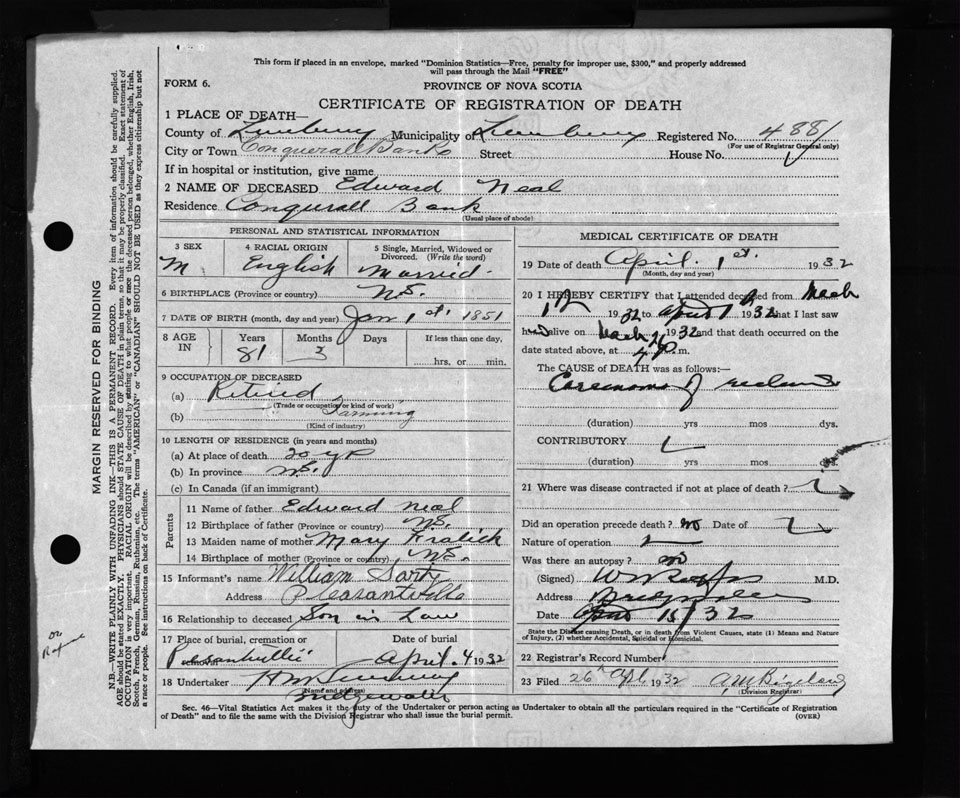 This form if placed in an envelope, marked "Dominion Statistics—Free, penalty for improper use, $300," and properly addressed
will pass through the Mail "FREE"
FORM 6.
PROVINCE OF NOVA SCOTIA
CERTIFICATE OF REGISTRATION OF DEATH
1 PLACE OF DEATH—
County of Lunenburg Municipality of Lunenburg Registered No. 4881
(For use of Registrar General only)
City or Town Conquerall Banks Street House No.
If in hospital or institution, give name
2 NAME OF DECEASED Edward Neal
Residence Conqurall Bank
(Usual place of abode)
PERSONAL AND STATISTICAL INFORMATION
3 SEX 4 RACIAL ORIGIN 5 Single, Married, Widowed or
Divorced. (Write the word)
M English Married.
6 BIRTHPLACE (Province or country) N.S.
7 DATE OF BIRTH (month, day and year) Jan 1st. 1851
8 AGE IN Years Months Days If less than one day,
81 3 hrs. or min.
9 OCCUPATION OF DECEASED
(a) Retired
(Trade or occupation or kind of work)
(b) Farming
(Kind of industry)
10 LENGTH OF RESIDENCE (in years and months)
(a) At place of death 20 yr
(b) In province N.S.
(c) In Canada (if an immigrant)
Parents
11 Name of father Edward Neal
12 Birthplace of father (Province or country) N.S.
13 Maiden name of mother Mary Fralick
14 Birthplace of mother (Province or country) N.S.
15 Informant's name William Sarty
Address Pleasantville
16 Relationship to deceased Son in Law
17 Place of burial, cremation or Date of burial
Pleasantville April. 4 1932
18 Undertaker
(Name and address)
Bridgewater
MEDICAL CERTIFICATE OF DEATH
19 Date of death April. 1st. 1932
(Month, day and year)
20 I HEREBY CERTIFY that I attended deceased from March
1932 to April 1 1932 that I last saw
h alive on March 26 1932 and that death occurred on the
date stated above, at 4 P. m.
The CAUSE of DEATH was as follows:—
Carcinoma of
(duration) yrs mos dys.
CONTRIBUTORY
(duration) yrs mos dys.
21 Where was disease contracted if not at place of death?
Did an operation precede death? no Date of
Nature of operation
Was there an autopsy? no
(Signed) M.D.
Address Bridgewater
Date April 15/32
State the Disease causing Death, or in death from Violent Causes, state (1) Means and Nature
of Injury, (2) whether Accidental, Suicidal or Homicidal.
22 Registrar's Record Number
23 Filed 26th Apl 1932 A.M. Bigelow
(Division Registrar)
Sec. 46—Vital Statistics Act makes it the duty of the Undertaker or person acting as Undertaker to obtain all the particulars required in the "Certificate of Registration
of Death" and to file the same with the Division Registrar who shall issue the burial permit.
(OVER)
MARGIN RESERVED FOR BINDING
N.B.—WRITE PLAINLY WITH UNFADING INK—THIS IS A PERMANENT RECORD. Every item of information should be carefully supplied.
AGE should be stated EXACTLY. PHYSICIANS should STATE CAUSE OF DEATH in plain terms, so that it may be properly classified. Exact statement of
OCCUPATION is very important. RACIAL ORIGIN will be described by stating to what people or race the deceased person belonged, whether English, Irish,
Scotch, French, German, Russian, Ruthenian, etc. The terms "AMERICAN" or "CANADIAN" SHOULD NOT BE USED as they express citizenship but not
a race or people. See instructions on back of Certificate.